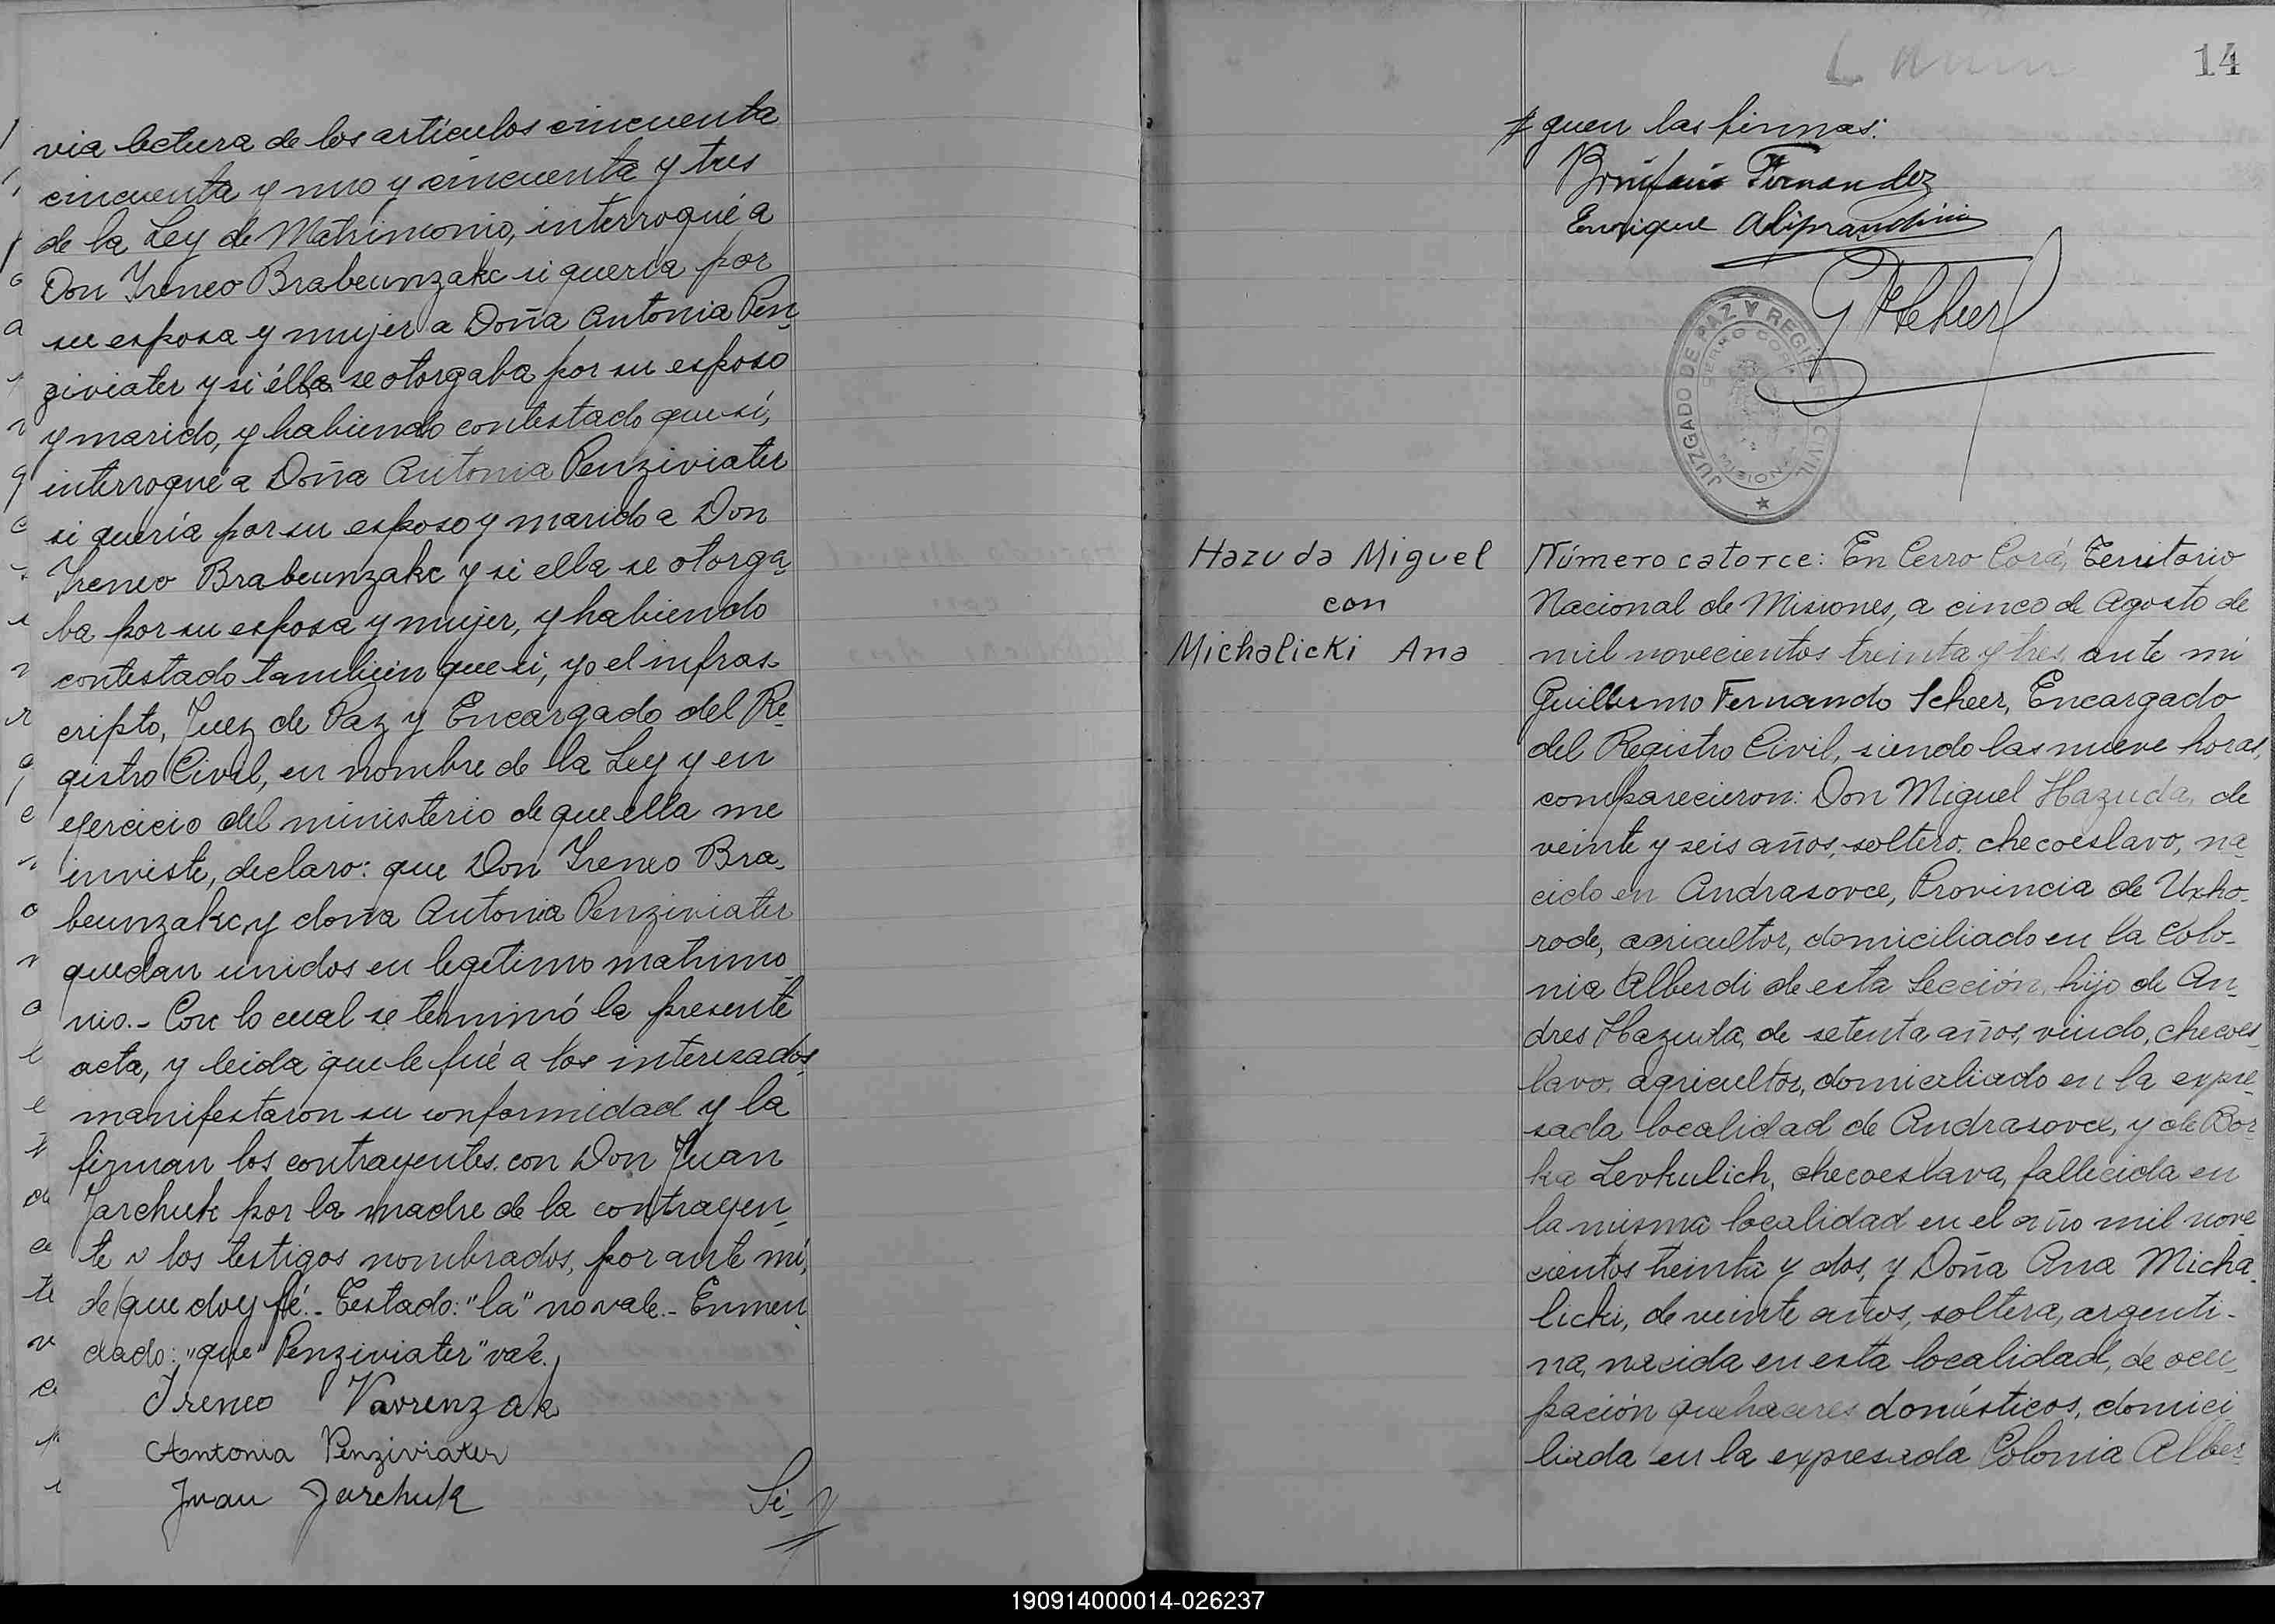 via lectura de los artículos cincuenta
cincuenta y uno y cincuenta y tres
de la Ley de Matrimonio, interrogué a
Don Ireneo Brabeunzakc si quería por
su esposa y mujer a Doña Antonia Pen-
ziviater y si élla se otorgaba por su esposo
y marido, y habiendo contestado que sí,
interrogué a Doña Antonia Penziviater
si quería por su esposo y marido a Don
Ireneo Brabeunzakc y si ella se otorga-
ba por su esposa y mujer, y habiendo
contestado tambien que si, yo el infras-
cripto, Juez de Paz y Encargado del Re-
gistro Civil, en nombre de la Ley y en
ejercicio del ministerio de que ella me
inviste, declaro: que Don Ireneo Bra-
beunzakc, y doña Antonia Penziviater
quedan unidos en legítimo matrimo-
nio.- Con lo cual se terminó la presente
acta, y leida que le fué a los interesados
manifestaron su conformidad y la
firman los contrayentes con Don Juan
Jarchuk por la madre de la contrayen-
te y los testigos nombrados, por ante mí,
de que doy fé.- Testado: "la" no vale.- Enmen-
dado: "que" Penziviater" vale.
Ireneo Vavrenzak
Antonia Penziviater
Juan Jarchuk
Si-
14
guen las firmas:
Bonifacio Fernandez
Enrique Aliprandini
G F Scheer
JUZGADO DE PAZ Y REGISTRO CIVIL
CERRO CORÁ
MISIONES
Hazuda Miguel
con
Michalicki Ana
Número catorce: En Cerro Corá, Territorio
Nacional de Misiones, a cinco de Agosto de
mil novecientos treinta y tres, ante mi
Guillermo Fernando Scheer, Encargado
del Registro Civil, siendo las nueve horas,
comparecieron: Don Miguel Hazuda, de
veinte y seis años, soltero, checoeslavo, na-
cido en Andrasovce, Provincia de Uxho-
rode, agricultor, domiciliado en la Colo-
nia Alberdi de esta Sección, hijo de An-
dres Hazuda, de setenta años, viudo, checoes-
lavo, agricultor, domiciliado en la expre-
sada localidad de Andrasovce, y de Bor-
ka Levkulich, checoeslava, fallecida en
la misma localidad en el año mil nove-
cientos treinta y dos, y Doña Ana Micha-
licki, de veinte años, soltera, argenti-
na, nacida en esta localidad, de ocu-
pación quehaceres domésticos, domici
liada en la expresada Colonia Alber-
190914000014-026237